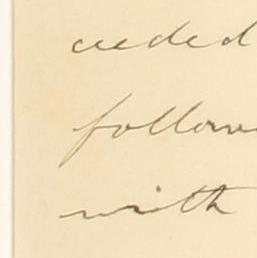 ceeded
follow
with